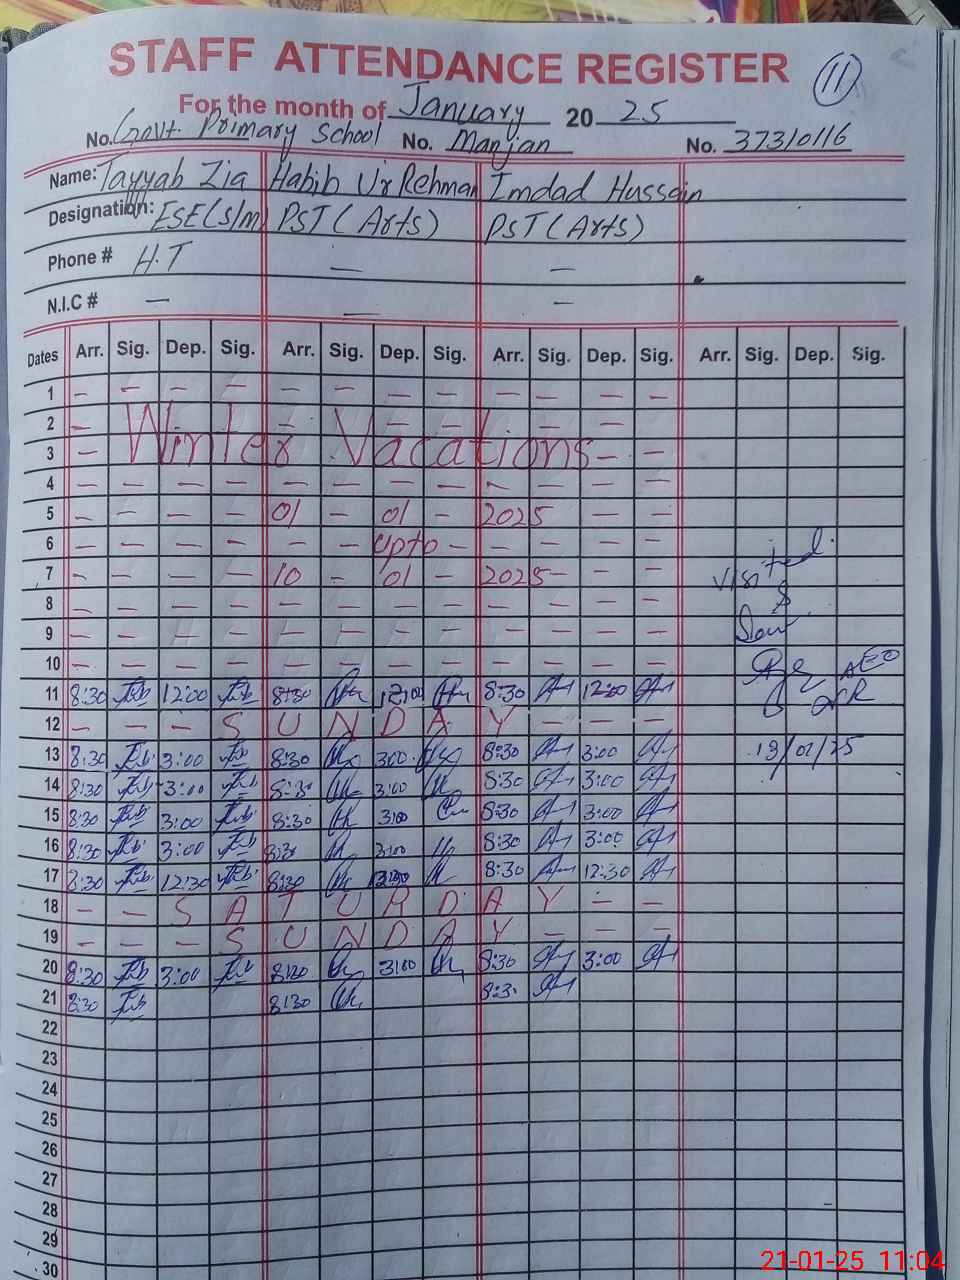 STAFF ATTENDANCE REGISTER
11
For the month of January 20 25
No. Govt. Primary School No. Manjan No. 37310116
Name: Tayyab Zia Habib Ur Rehman Imdad Hussain
Designation: ESE(S/M) PST (Arts) PST (Arts)
Phone # H.T — —
N.I.C # — — —
Dates Arr. Sig. Dep. Sig. Arr. Sig. Dep. Sig. Arr. Sig. Dep. Sig. Arr. Sig. Dep. Sig.
1 - - - - - - - - - - - -
2 - - - - - - -
3 - Winter Vacations - -
4 - - - - - - - - - - - -
5 - - - - 01 - 01 - 2025 - -
6 - - - - - - upto - - - - -
7 - - - - 10 - 01 - 2025 - - -
visited
8 - - - - - - - - - - - -
9 - - - - - - - - - - - -
10 - - - - - - - - - - - -
AEO
11 8:30 12:00 8:30 12:00 8:30 12:00
12 - - - S U N D A Y - - -
13 8:30 3:00 8:30 3:00 8:30 3:00
14 8:30 3:00 8:30 3:00 8:30 3:00
15 8:30 3:00 8:30 3:00 8:30 3:00
16 8:30 3:00 8:30 3:00 8:30 3:00
17 8:30 12:30 8:30 12:30 8:30 12:30
18 - - S A T U R D A Y - -
19 - - - S U N D A Y - - -
20 8:30 3:00 8:30 3:00 8:30 3:00
21 8:30 8:30 8:3
22
23
24
25
26
27
28
29
30
21-01-25 11:04